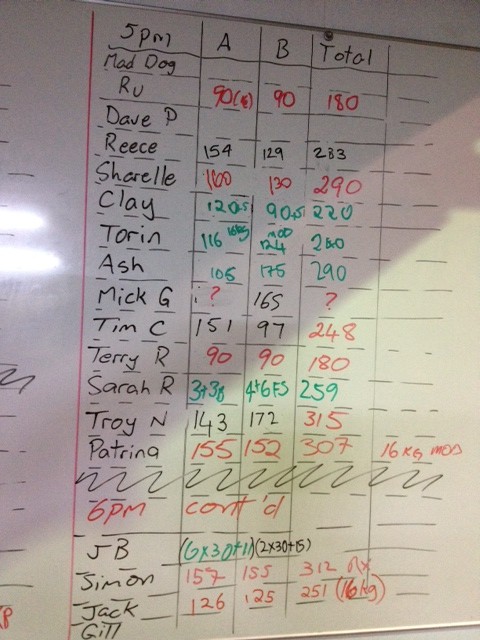 5pm A B Total
Mad Dog
Ru 90 90 180
Dave P
Reece 154 129 283
Sharelle 160 130 290
Clay 120.5 90.5 220
Torin 116 16kg 124 MOD 240
Ash 105 175 290
Mick G ? 165 ?
Tim C 151 97 248
Terry R 90 90 180
Sarah R 259
Troy N 143 172 315
Patrina 155 152 307 16kg MOD
6pm cont'd
JB (6x30+11) (2x30+15)
Simon 157 155 312 Rx
Jack 126 125 251 (16kg)
Gill